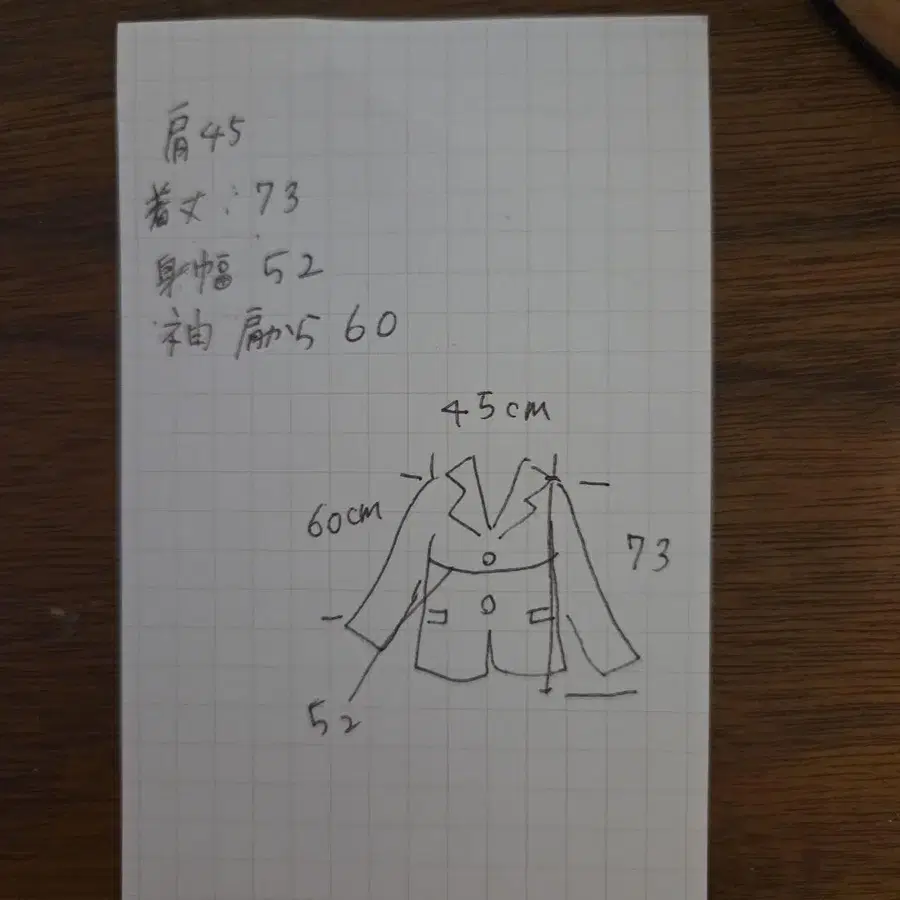 肩45
着丈:73
身幅 52
袖 肩から 60
45cm
60cm
73
52